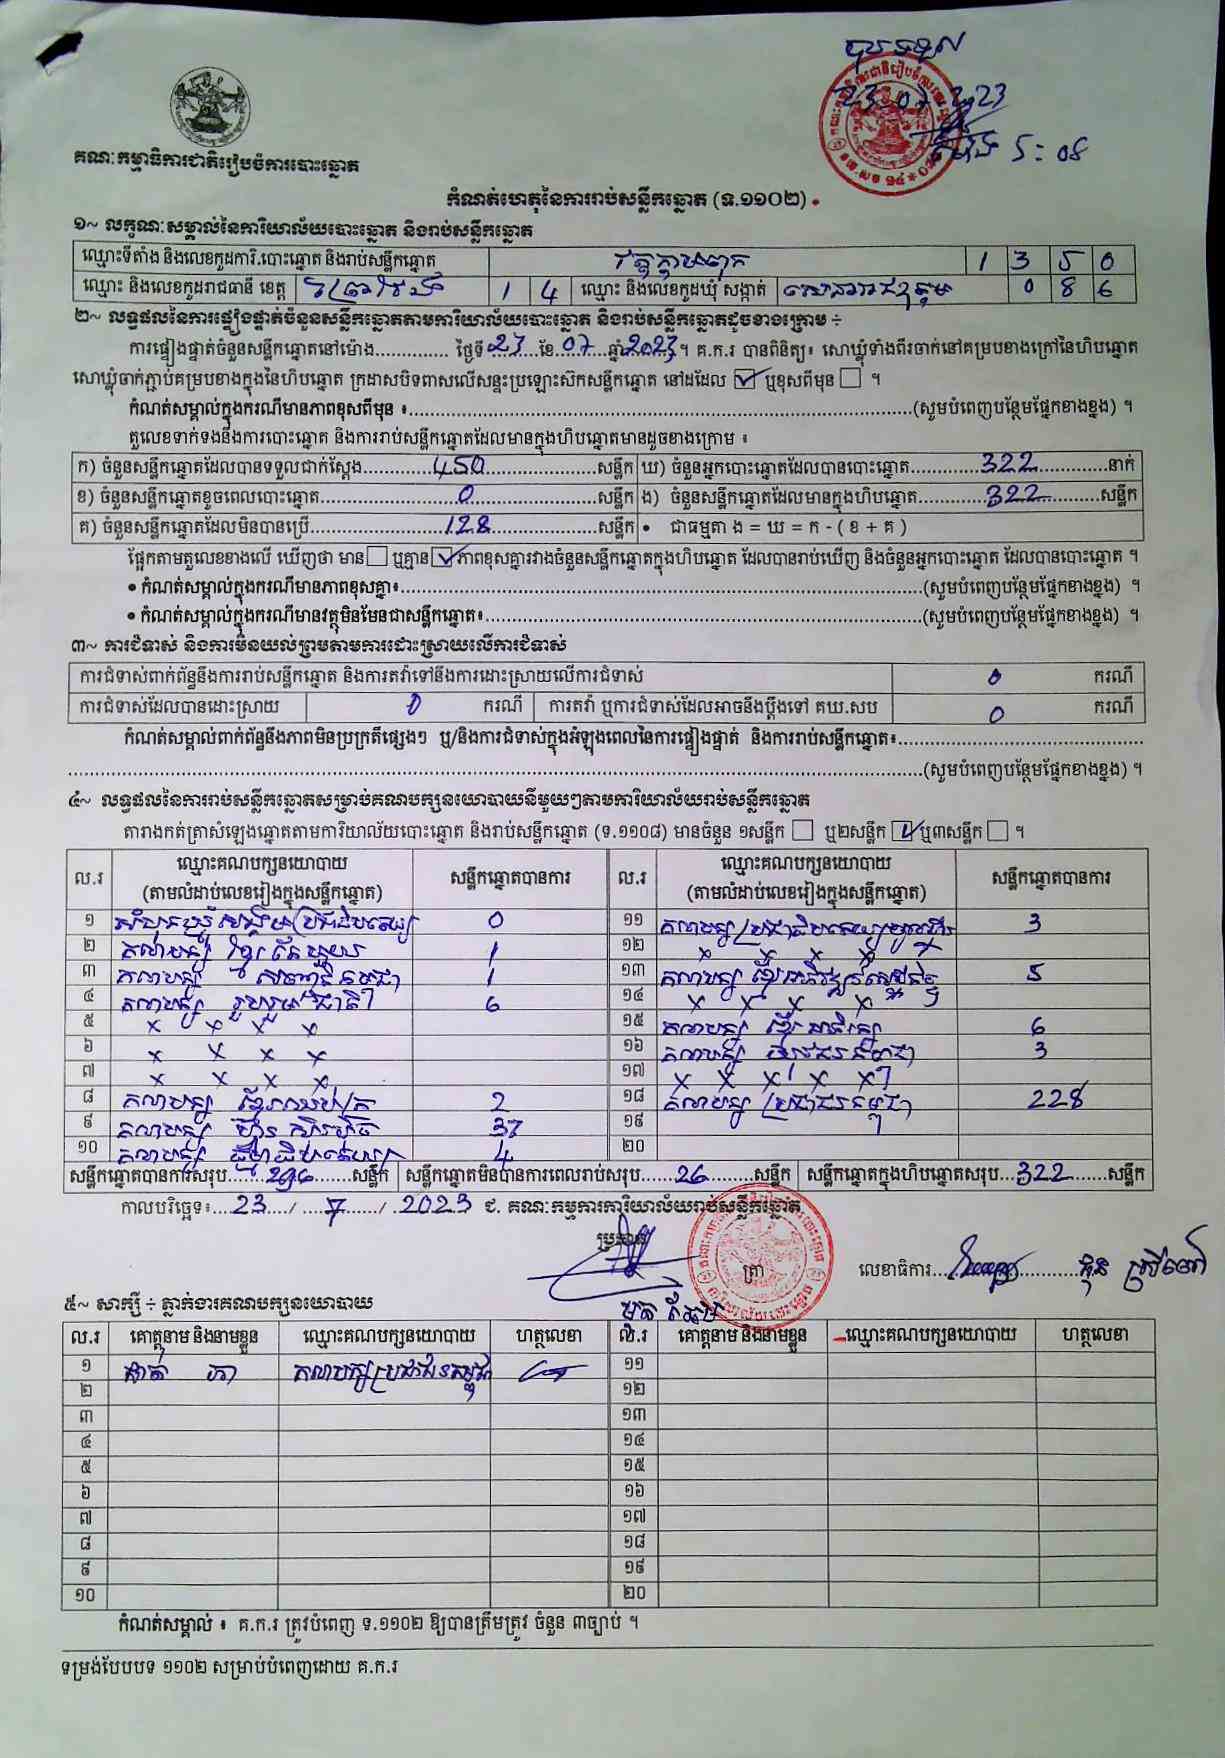 23 07 2023
ម៉ោង ៦: ០៩
គណៈកម្មាធិការជាតិរៀបចំការបោះឆ្នោត
កំណត់ហេតុនៃការរាប់សន្លឹកឆ្នោត (ទ.១១០២)
១~ លក្ខណៈសម្គាល់នៃការិយាល័យបោះឆ្នោត និងរាប់សន្លឹកឆ្នោត
ឈ្មោះទីតាំង និងលេខកូដការិ.បោះឆ្នោត និងរាប់សន្លឹកឆ្នោត 1 3 5 0
ឈ្មោះ និងលេខកូដរាជធានី ខេត្ត ព្រៃវែង 1 4 ឈ្មោះ និងលេខកូដឃុំ សង្កាត់ 0 8 6
២~ លទ្ធផលនៃការផ្ទៀងផ្ទាត់ចំនួនសន្លឹកឆ្នោតតាមការិយាល័យបោះឆ្នោត និងរាប់សន្លឹកឆ្នោតដូចខាងក្រោម ÷
ការផ្ទៀងផ្ទាត់ចំនួនសន្លឹកឆ្នោតនៅម៉ោង.............. ថ្ងៃទី 23 ខែ 07 ឆ្នាំ 2023 ។ គ.ក.រ បានពិនិត្យ៖ សោឃ្លុំទាំងពីរចាក់នៅគម្របខាងក្រៅនៃហិបឆ្នោត
សោឃ្លុំចាក់ភ្ជាប់គម្របខាងក្នុងនៃហិបឆ្នោត ក្រដាសបិទពាសលើសន្ទះប្រឡោះស៊កសន្លឹកឆ្នោត នៅដដែល ☑ ឬខុសពីមុន ☐ ។
កំណត់សម្គាល់ក្នុងករណីមានភាពខុសពីមុន ៖..........(សូមបំពេញបន្ថែមផ្នែកខាងខ្នង) ។
តួលេខទាក់ទងនឹងការបោះឆ្នោត និងការរាប់សន្លឹកឆ្នោតដែលមានក្នុងហិបឆ្នោតមានដូចខាងក្រោម ៖
ក) ចំនួនសន្លឹកឆ្នោតដែលបានទទួលជាក់ស្ដែង 450 សន្លឹក ឃ) ចំនួនអ្នកបោះឆ្នោតដែលបានបោះឆ្នោត 322 នាក់
ខ) ចំនួនសន្លឹកឆ្នោតខូចពេលបោះឆ្នោត 0 សន្លឹក ង) ចំនួនសន្លឹកឆ្នោតដែលមានក្នុងហិបឆ្នោត 322 សន្លឹក
គ) ចំនួនសន្លឹកឆ្នោតដែលមិនបានប្រើ 128 សន្លឹក • ជាធម្មតា ង = ឃ = ក - ( ខ + គ )
ផ្អែកតាមតួលេខខាងលើ ឃើញថា មាន ☐ ឬគ្មាន ☑ ភាពខុសគ្នារវាងចំនួនសន្លឹកឆ្នោតក្នុងហិបឆ្នោត ដែលបានរាប់ឃើញ និងចំនួនអ្នកបោះឆ្នោត ដែលបានបោះឆ្នោត ។
• កំណត់សម្គាល់ក្នុងករណីមានភាពខុសគ្នា៖..........(សូមបំពេញបន្ថែមផ្នែកខាងខ្នង) ។
• កំណត់សម្គាល់ក្នុងករណីមានវត្ថុមិនមែនជាសន្លឹកឆ្នោត៖..........(សូមបំពេញបន្ថែមផ្នែកខាងខ្នង) ។
៣~ ការជំទាស់ និងការមិនយល់ព្រមតាមការដោះស្រាយលើការជំទាស់
ការជំទាស់ពាក់ព័ន្ធនឹងការរាប់សន្លឹកឆ្នោត និងការតវ៉ាទៅនឹងការដោះស្រាយលើការជំទាស់ 0 ករណី
ការជំទាស់ដែលបានដោះស្រាយ 0 ករណី ការតវ៉ា ឬការជំទាស់ដែលអាចនឹងប្ដឹងទៅ គឃ.សប 0 ករណី
កំណត់សម្គាល់ពាក់ព័ន្ធនឹងភាពមិនប្រក្រតីផ្សេងៗ ឬ/និងការជំទាស់ក្នុងអំឡុងពេលនៃការផ្ទៀងផ្ទាត់ និងការរាប់សន្លឹកឆ្នោត៖..........
..........(សូមបំពេញបន្ថែមផ្នែកខាងខ្នង) ។
៤~ លទ្ធផលនៃការរាប់សន្លឹកឆ្នោតសម្រាប់គណបក្សនយោបាយនីមួយៗតាមការិយាល័យរាប់សន្លឹកឆ្នោត
តារាងកត់ត្រាសំឡេងឆ្នោតតាមការិយាល័យបោះឆ្នោត និងរាប់សន្លឹកឆ្នោត (ទ.១១០៨) មានចំនួន ១សន្លឹក ☐ ឬ២សន្លឹក ☑ ឬ៣សន្លឹក ☐ ។
ល.រ ឈ្មោះគណបក្សនយោបាយ (តាមលំដាប់លេខរៀងក្នុងសន្លឹកឆ្នោត) សន្លឹកឆ្នោតបានការ ល.រ ឈ្មោះគណបក្សនយោបាយ (តាមលំដាប់លេខរៀងក្នុងសន្លឹកឆ្នោត) សន្លឹកឆ្នោតបានការ
១ 0 ១១ 3
២ គណបក្ស ខ្មែរតែមួយ 1 ១២ x x x x
៣ គណបក្ស 1 ១៣ 5
៤ គណបក្ស រួបរួមជាតិ 6 ១៤ x x x x
៥ x x x x ១៥ គណបក្ស 6
៦ x x x x ១៦ គណបក្ស 3
៧ x x x x ១៧ x x x x x
៨ គណបក្ស 2 ១៨ គណបក្ស ប្រជាជនកម្ពុជា 228
៩ គណបក្ស ហ៊្វុនស៊ិនប៉ិច 37 ១៩
១០ គណបក្ស 4 ២០
សន្លឹកឆ្នោតបានការសរុប 296 សន្លឹក សន្លឹកឆ្នោតមិនបានការពេលរាប់សរុប 26 សន្លឹក សន្លឹកឆ្នោតក្នុងហិបឆ្នោតសរុប 322 សន្លឹក
កាលបរិច្ឆេទ៖ 23 / 7 / 2023 ជ. គណៈកម្មការការិយាល័យរាប់សន្លឹកឆ្នោត
ប្រធាន ត្រា លេខាធិការ
៥~ សាក្សី ÷ ភ្នាក់ងារគណបក្សនយោបាយ
ល.រ គោត្តនាម និងនាមខ្លួន ឈ្មោះគណបក្សនយោបាយ ហត្ថលេខា ល.រ គោត្តនាម និងនាមខ្លួន ឈ្មោះគណបក្សនយោបាយ ហត្ថលេខា
១ គណបក្សប្រជាជនកម្ពុជា ១១
២ ១២
៣ ១៣
៤ ១៤
៥ ១៥
៦ ១៦
៧ ១៧
៨ ១៨
៩ ១៩
១០ ២០
កំណត់សម្គាល់ ៖ គ.ក.រ ត្រូវបំពេញ ទ.១១០២ ឱ្យបានត្រឹមត្រូវ ចំនួន ៣ច្បាប់ ។
ទម្រង់បែបបទ ១១០២ សម្រាប់បំពេញដោយ គ.ក.រ